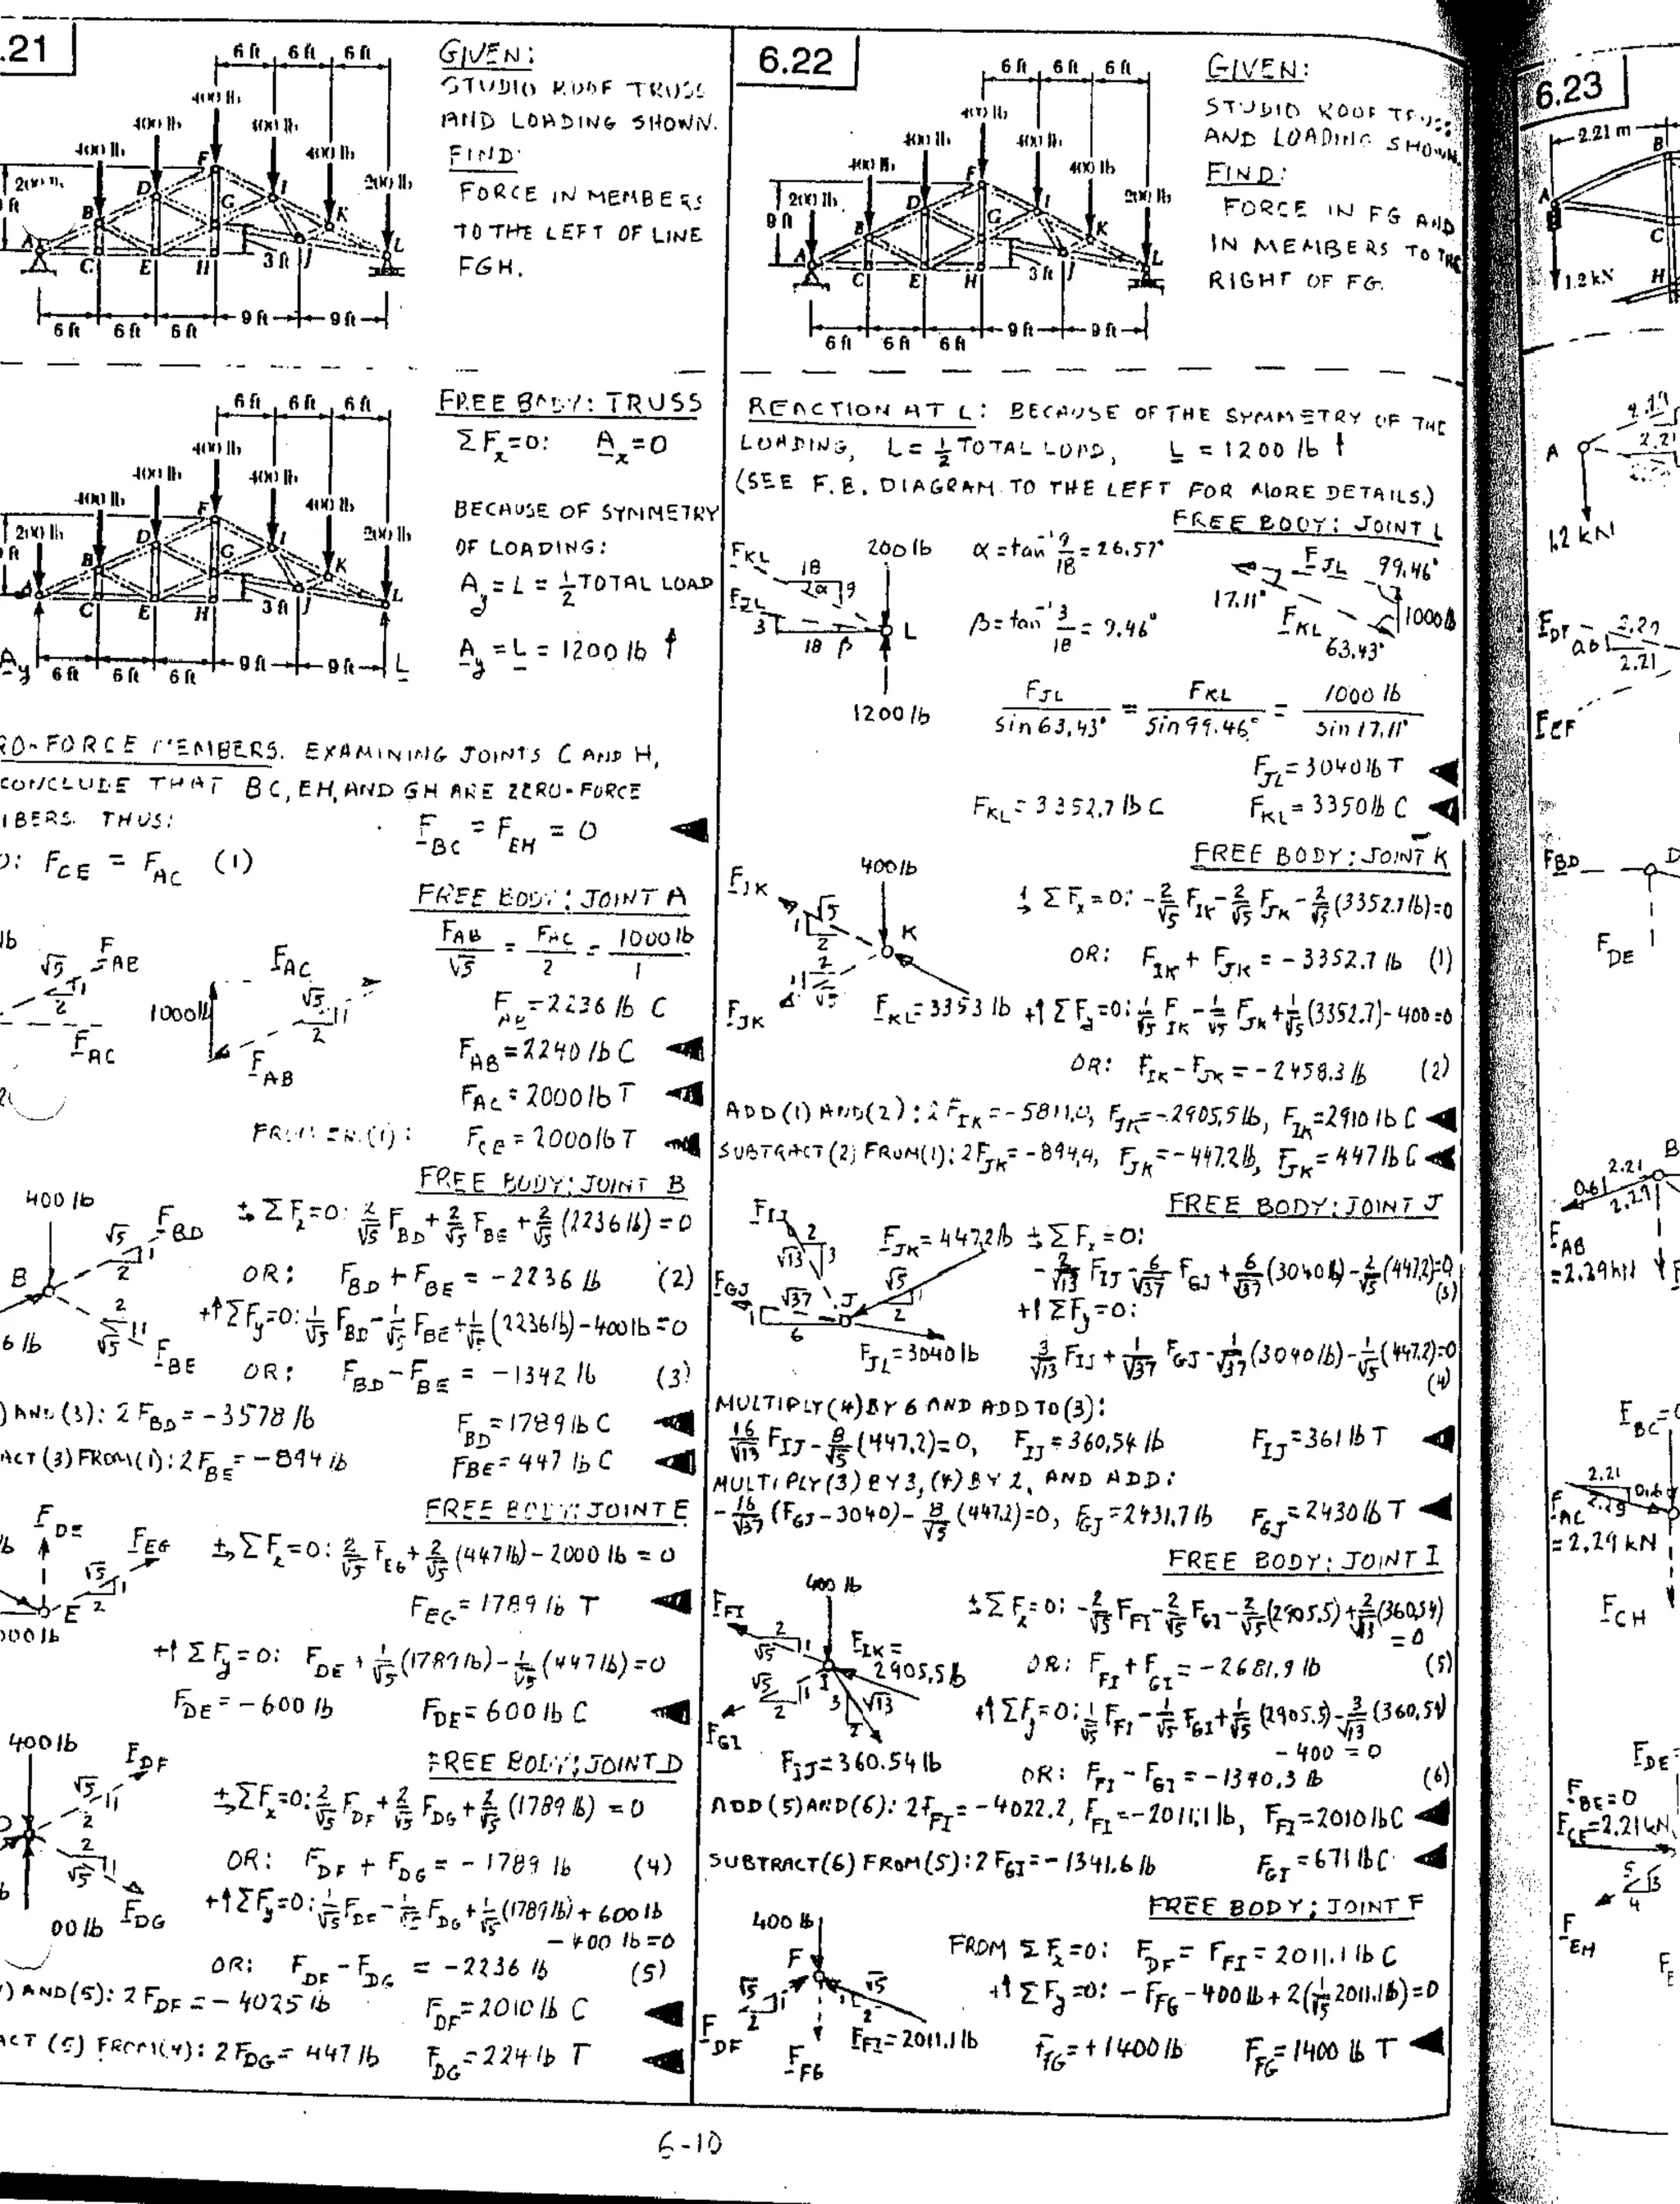 .21
6 ft 6 ft 6 ft
400 lb
400 lb 400 lb
400 lb 400 lb
200 lb 200 lb
F
D I
B G K
A L
C E H J
3 ft
6 ft 6 ft 6 ft 9 ft 9 ft
GIVEN:
STUDIO ROOF TRUSS
AND LOADING SHOWN.
FIND:
FORCE IN MEMBERS
TO THE LEFT OF LINE
FGH.
6 ft 6 ft 6 ft
400 lb
400 lb 400 lb
400 lb 400 lb
200 lb 200 lb
F
D I
B G K
A L
C E H J
3 ft
A_y 6 ft 6 ft 6 ft 9 ft 9 ft L
FREE BODY: TRUSS
ΣF_x=0: A_x=0
BECAUSE OF SYMMETRY
OF LOADING:
A_y = L = 1/2 TOTAL LOAD
A_y = L = 1200 lb ↑
RO-FORCE MEMBERS. EXAMINING JOINTS C AND H,
CONCLUDE THAT BC, EH, AND GH ARE ZERO-FORCE
IBERS. THUS:
F_BC = F_EH = 0
: F_CE = F_AC (1)
FREE BODY: JOINT A
F_AB/√5 = F_AC/2 = 1000 lb/1
√5 1 2 F_AB F_AC
1000 lb F_AC √5 1 2 F_AB
F_AB = 2236 lb C
F_AB = 2240 lb C
F_AC = 2000 lb T
FROM EQ.(1): F_CE = 2000 lb T
FREE BODY: JOINT B
400 lb
B √5 1 2 F_BD
2 √5 1 F_BE
6 lb
±→ ΣF_x=0: 2/√5 F_BD + 2/√5 F_BE + 2/√5 (2236 lb) = 0
OR: F_BD + F_BE = -2236 lb (2)
+↑ΣF_y=0: 1/√5 F_BD - 1/√5 F_BE + 1/√5 (2236 lb) - 400 lb = 0
OR: F_BD - F_BE = -1342 lb (3)
) AND (3): 2F_BD = -3578 lb F_BD = 1789 lb C
ACT (3) FROM (1): 2F_BE = -894 lb F_BE = 447 lb C
FREE BODY: JOINT E
F_DE F_EG √5 1 2 E
000 lb
±→ ΣF_x=0: 2/√5 F_EG + 2/√5 (447 lb) - 2000 lb = 0
F_EG = 1789 lb T
+↑ ΣF_y=0: F_DE + 1/√5 (1789 lb) - 1/√5 (447 lb) = 0
F_DE = -600 lb F_DE = 600 lb C
FREE BODY: JOINT D
400 lb F_DF √5 1 2
2 √5 1 F_DG
00 lb
±→ ΣF_x=0: 2/√5 F_DF + 2/√5 F_DG + 2/√5 (1789 lb) = 0
OR: F_DF + F_DG = -1789 lb (4)
+↑ΣF_y=0: 1/√5 F_DF - 1/√5 F_DG + 1/√5 (1789 lb) + 600 lb
- 400 lb = 0
OR: F_DF - F_DG = -2236 lb (5)
) AND (5): 2F_DF = -4025 lb F_DF = 2010 lb C
ACT (5) FROM (4): 2F_DG = 447 lb F_DG = 224 lb T
6.22
6 ft 6 ft 6 ft
400 lb
400 lb 400 lb
400 lb 400 lb
200 lb 200 lb
9 ft
F
D I
B G K
A L
C E H J
3 ft
6 ft 6 ft 6 ft 9 ft 9 ft
GIVEN:
STUDIO ROOF TRUSS
AND LOADING SHOWN.
FIND:
FORCE IN FG AND
IN MEMBERS TO THE
RIGHT OF FG.
REACTION AT L: BECAUSE OF THE SYMMETRY OF THE
LOADING, L = 1/2 TOTAL LOAD, L = 1200 lb ↑
(SEE F.B. DIAGRAM TO THE LEFT FOR MORE DETAILS.)
FREE BODY: JOINT L
F_KL 18 α 9 200 lb
F_JL 3 18 β L
1200 lb
α = tan⁻¹ 9/18 = 26.57°
β = tan⁻¹ 3/18 = 9.46°
F_JL 99.46°
17.11° F_KL 1000 lb
63.43°
F_JL/sin 63.43° = F_KL/sin 99.46° = 1000 lb/sin 17.11°
F_JL = 3040 lb T
F_KL = 3352.7 lb C F_KL = 3350 lb C
FREE BODY: JOINT K
400 lb
F_IK √5 1 2 K
2 1 √5 F_JK
F_KL = 3353 lb
±→ ΣF_x=0: -2/√5 F_IK - 2/√5 F_JK - 2/√5 (3352.7 lb) = 0
OR: F_IK + F_JK = -3352.7 lb (1)
+↑ ΣF_y=0: 1/√5 F_IK - 1/√5 F_JK + 1/√5 (3352.7) - 400 = 0
OR: F_IK - F_JK = -2458.3 lb (2)
ADD (1) AND (2): 2F_IK = -5811.0, F_IK = -2905.5 lb, F_IK = 2910 lb C
SUBTRACT (2) FROM (1): 2F_JK = -894.4, F_JK = -447.2 lb, F_JK = 447 lb C
FREE BODY: JOINT J
F_IJ 2 √13 3 F_JK = 447.2 lb
F_GJ √37 1 6 J √5 1 2
F_JL = 3040 lb
±→ ΣF_x = 0:
-2/√13 F_IJ - 6/√37 F_GJ + 6/√37 (3040 lb) - 2/√5 (447.2) = 0 (3)
+↑ ΣF_y=0:
3/√13 F_IJ + 1/√37 F_GJ - 1/√37 (3040 lb) - 1/√5 (447.2) = 0 (4)
MULTIPLY (4) BY 6 AND ADD TO (3):
16/√13 F_IJ - 8/√5 (447.2) = 0, F_IJ = 360.54 lb F_IJ = 361 lb T
MULTIPLY (3) BY 3, (4) BY 2, AND ADD:
-16/√37 (F_GJ - 3040) - 8/√5 (447.2) = 0, F_GJ = 2431.7 lb F_GJ = 2430 lb T
FREE BODY: JOINT I
400 lb
F_FI 2 √5 1 F_IK =
2905.5 lb
√5 1 2 I 3 √13 2
F_GI
F_IJ = 360.54 lb
±→ ΣF_x=0: -2/√5 F_FI - 2/√5 F_GI - 2/√5 (2905.5) + 2/√13 (360.54)
= 0
OR: F_FI + F_GI = -2681.9 lb (5)
+↑ ΣF_y=0: 1/√5 F_FI - 1/√5 F_GI + 1/√5 (2905.5) - 3/√13 (360.54)
- 400 = 0
OR: F_FI - F_GI = -1340.3 lb (6)
ADD (5) AND (6): 2F_FI = -4022.2, F_FI = -2011.1 lb, F_FI = 2010 lb C
SUBTRACT (6) FROM (5): 2F_GI = -1341.6 lb F_GI = 671 lb C
FREE BODY: JOINT F
400 lb
F √5 1 2 √5 1 2
F_DF F_FG F_FI = 2011.1 lb
FROM ΣF_x=0: F_DF = F_FI = 2011.1 lb C
+↑ ΣF_y=0: -F_FG - 400 lb + 2(1/√5 2011.1 lb) = 0
F_FG = +1400 lb F_FG = 1400 lb T
6-10
6.23
2.21 m
B
A
C
H
1.2 kN
A 2.21
1.2 kN
F_DF 2.29
0.61 2.21
F_CF
F_BD D
F_DE
B
2.21
0.61 2.29
F_AB
= 2.29 kN
F_BC =
2.21
0.6
F_AC 2.29
= 2.29 kN
F_CH
F_DE
F_BE = 0
F_CE = 2.21 kN
5 3
4
F_EH